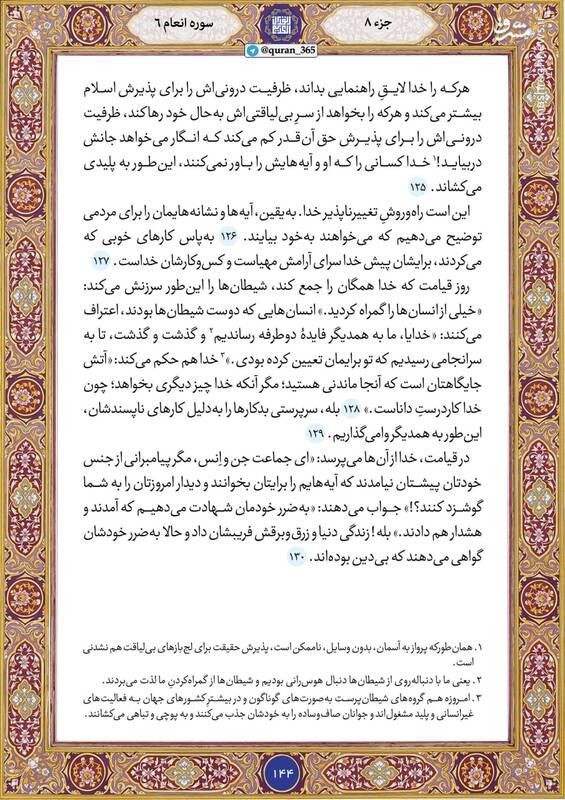 جزء ۸
سوره انعام ۶
@quran_365
هرکه را خدا لایقِ راهنمایی بداند، ظرفیت درونی‌اش را برای پذیرش اسلام
بیشتر می‌کند و هرکه را بخواهد از سرِ بی‌لیاقتی‌اش به‌حال خود رها کند، ظرفیت
درونی‌اش را بـرای پذیرش حق آن‌قدر کم می‌کند کـه انـگار می‌خواهد جانش
دربیاید!۱ خدا کسانی را که او و آیه‌هایش را باور نمی‌کنند، این‌طور به پلیدی
می‌کشاند. ۱۲۵
این است راه‌وروشِ تغییرناپذیر خدا. به‌یقین، آیه‌ها و نشانه‌هایمان را برای مردمی
توضیح می‌دهیم که می‌خواهند به‌خود بیایند. ۱۲۶ به‌پاس کارهای خوبی که
می‌کردند، برایشان پیش خدا سرای آرامش مهیاست و کس‌وکارشان خداست. ۱۲۷
روز قیامت که خدا همگان را جمع کند، شیطان‌ها را این‌طور سرزنش می‌کند:
«خیلی از انسان‌ها را گمراه کردید.» انسان‌هایی که دوست شیطان‌ها بودند، اعتراف
می‌کنند: «خدایا، ما به همدیگر فایدهٔ دوطرفه رساندیم۲ و گذشت و گذشت، تا به
سرانجامی رسیدیم که تو برایمان تعیین کرده بودی.»۳ خدا هم حکم می‌کند: «آتش
جایگاهتان است که آنجا ماندنی هستید؛ مگر آنکه خدا چیز دیگری بخواهد؛ چون
خدا کاردرستِ داناست.» ۱۲۸ بله، سرپرستی بدکارها را به‌دلیل کارهای ناپسندشان،
این‌طور به همدیگر وامی‌گذاریم. ۱۲۹
در قیامت، خدا از آن‌ها می‌پرسد: «ای جماعت جن و اِنس، مگر پیامبرانی از جنس
خودتان پیشتان نیامدند که آیه‌هایم را برایتان بخوانند و دیدار امروزتان را به شما
گوشزد کنند؟!» جـواب می‌دهند: «به‌ضرر خودمان شـهادت می‌دهیـم که آمدند و
هشدار هم دادند.» بله! زندگی دنیا و زرق‌وبرقش فریبشان داد و حالا به‌ضرر خودشان
گواهی می‌دهند که بی‌دین بوده‌اند. ۱۳۰
۱. همان‌طورکه پرواز به آسمان، بدون وسایل، ناممکن است، پذیرش حقیقت برای لج‌بازهای بی‌لیاقت هم نشدنی
است.
۲. یعنی ما با دنباله‌روی از شیطان‌ها دنبال هوس‌رانی بودیم و شیطان‌ها از گمراه‌کردنِ ما لذت می‌بردند.
۳. امـروزه هـم گروه‌های شیطان‌پرسـت به‌صورت‌های گوناگون و در بیشترِ کشورهای جهان بـه فعالیت‌های
غیرانسانی و پلید مشغول‌اند و جوانان صاف‌وساده را به خودشان جذب می‌کنند و به پوچی و تباهی می‌کشانند.
۱۴۴